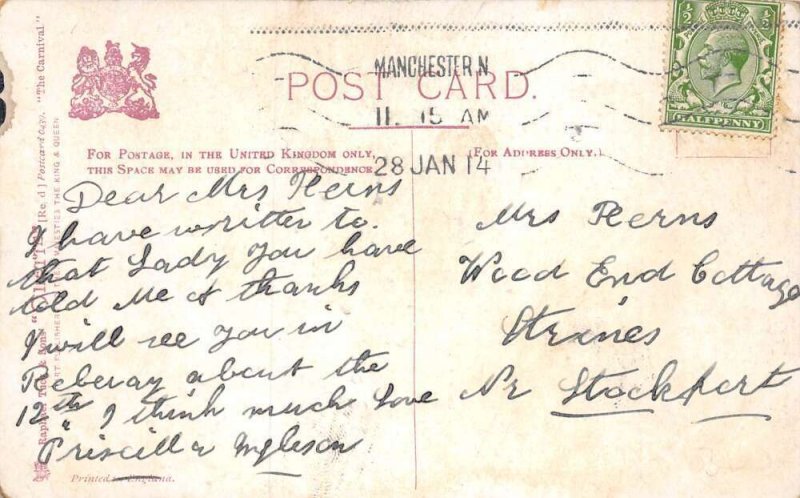 MANCHESTER N
11. 15 AM
28 JAN 14
HALFPENNY
POST CARD.
FOR POSTAGE, IN THE UNITED KINGDOM ONLY,
THIS SPACE MAY BE USED FOR CORRESPONDENCE
(FOR ADDRESS ONLY.)
Dear Mrs Herns
I have written to
that Lady you have
told Me of thanks
I will see you in
Feberay about the
12th I think much Love
Priscilla Ingleson
Mrs Herns
Wood End Cottage
Strines
Nr Stockport
Raphael Tuck & Sons' "OILETTE" [Regd.] Postcard 6439. "The Carnival"
MAJESTIES THE KING & QUEEN
Printed in England.